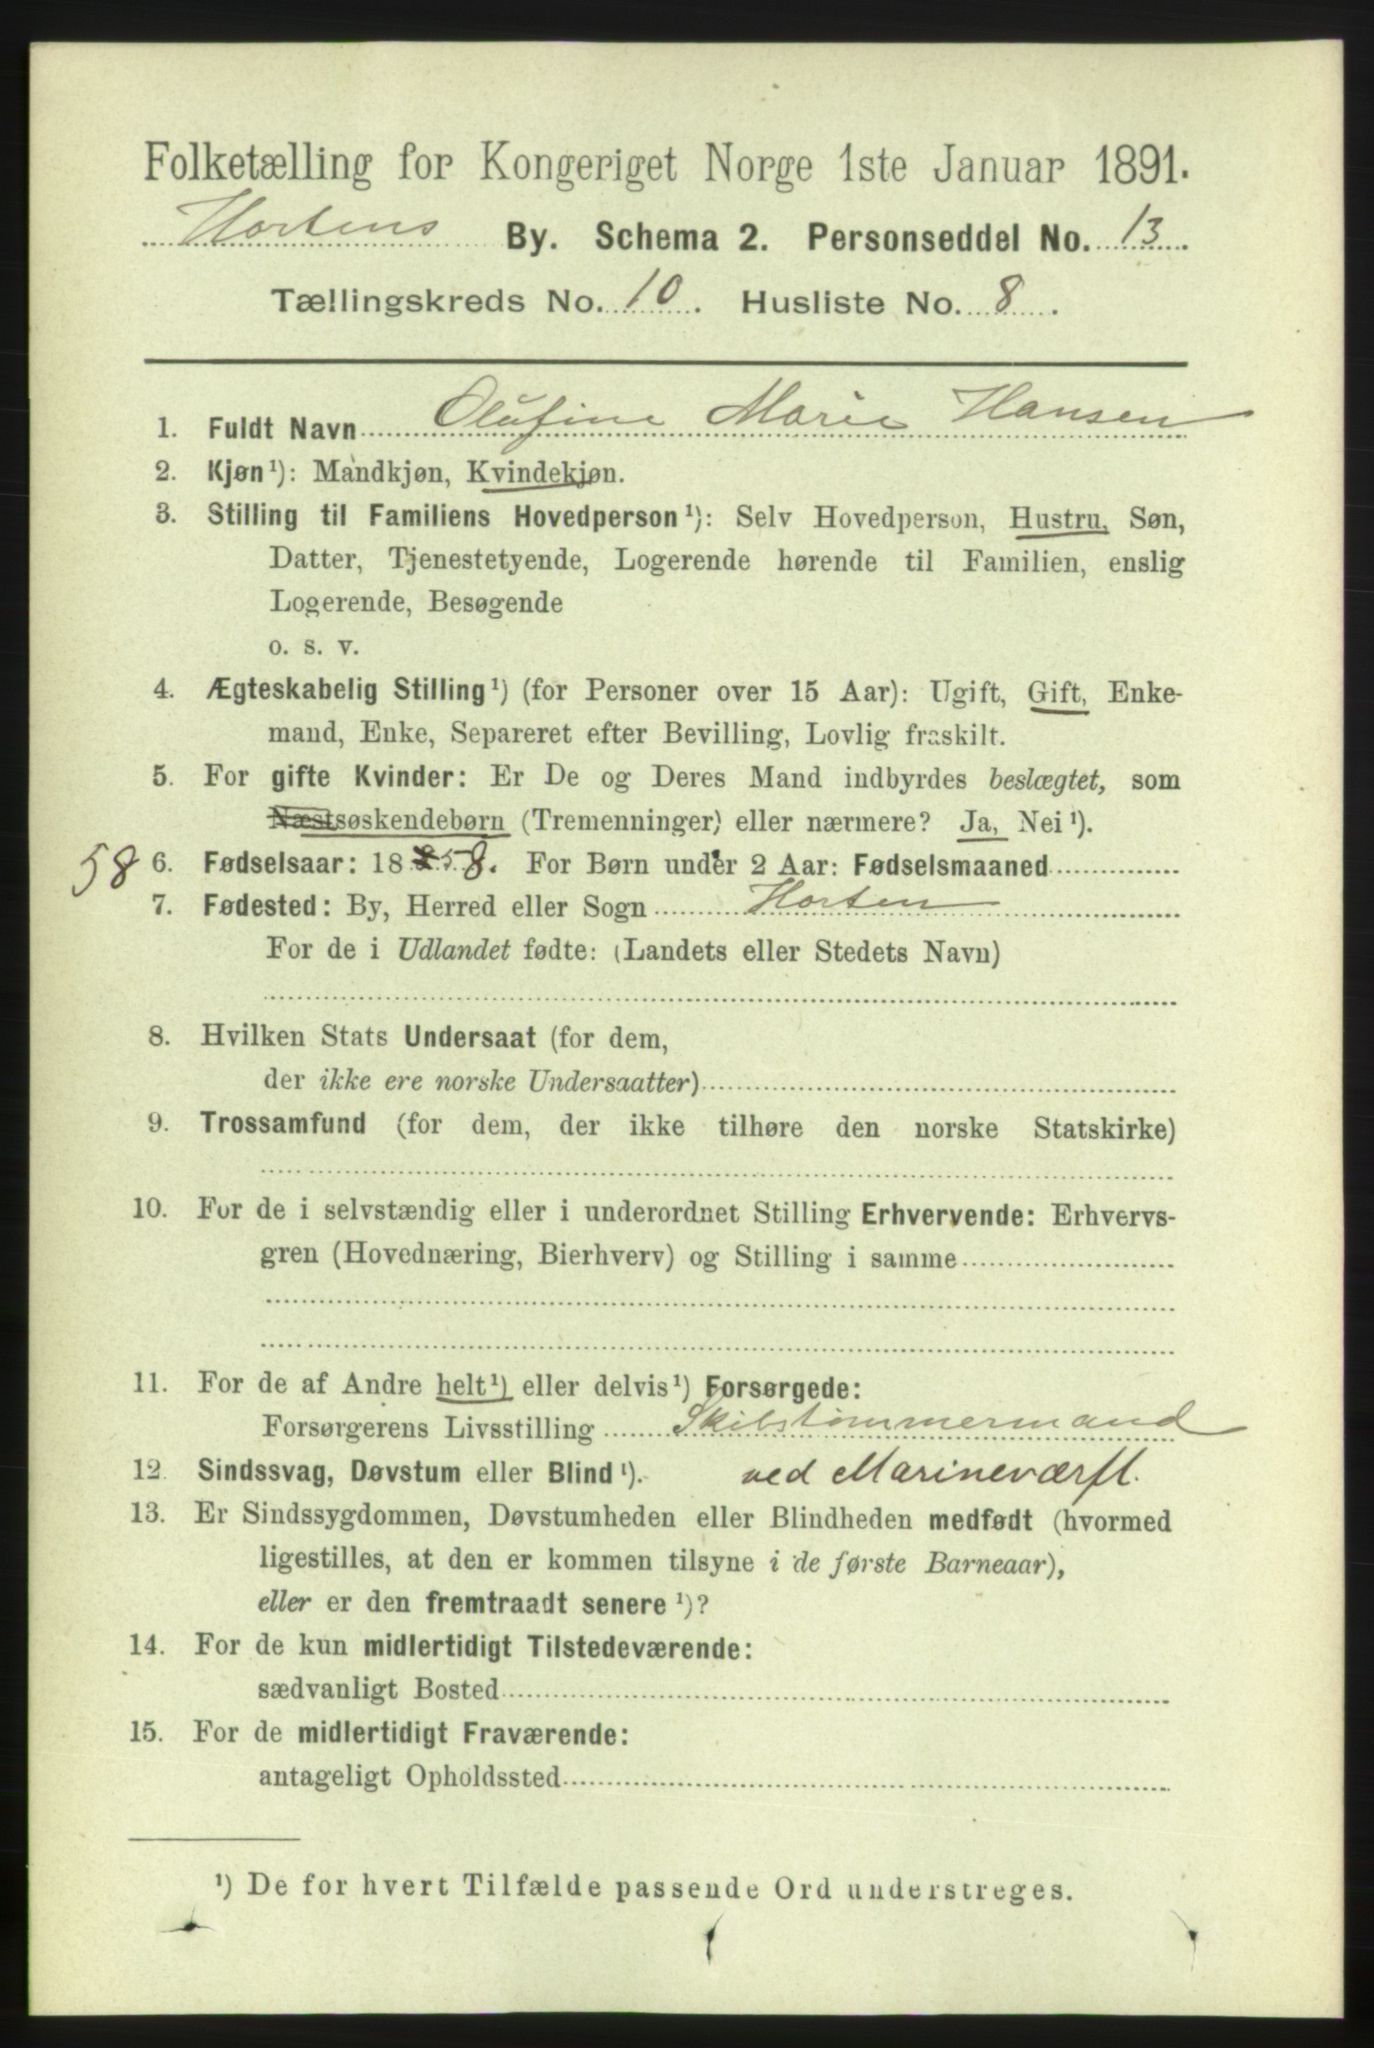 Folketælling for Kongeriget Norge 1ste Januar 1891.
Hortens By. Schema 2. Personseddel No. 13.
Tællingskreds No. 10. Husliste No. 8.
1. Fuldt Navn Olufine Marie Hansen
2. Kjøn¹): Mandkjøn, Kvindekjøn.
3. Stilling til Familiens Hovedperson¹): Selv Hovedperson, Hustru, Søn,
Datter, Tjenestetyende, Logerende hørende til Familien, enslig
Logerende, Besøgende
o. s. v.
4. Ægteskabelig Stilling¹) (for Personer over 15 Aar): Ugift, Gift, Enke-
mand, Enke, Separeret efter Bevilling, Lovlig fraskilt.
5. For gifte Kvinder: Er De og Deres Mand indbyrdes beslægtet, som
Næstsøskendebørn (Tremenninger) eller nærmere? Ja, Nei¹).
58 6. Fødselsaar: 18 58. For Børn under 2 Aar: Fødselsmaaned
7. Fødested: By, Herred eller Sogn Horten
For de i Udlandet fødte: (Landets eller Stedets Navn)
8. Hvilken Stats Undersaat (for dem,
der ikke ere norske Undersaatter)
9. Trossamfund (for dem, der ikke tilhøre den norske Statskirke)
10. For de i selvstændig eller i underordnet Stilling Erhvervende: Erhvervs-
gren (Hovednæring, Bierhverv) og Stilling i samme
11. For de af Andre helt¹) eller delvis¹) Forsørgede:
Forsørgerens Livsstilling Skibstømmermand
12. Sindssvag, Døvstum eller Blind¹). ved Marineværft.
13. Er Sindssygdommen, Døvstumheden eller Blindheden medfødt (hvormed
ligestilles, at den er kommen tilsyne i de første Barneaar),
eller er den fremtraadt senere¹)?
14. For de kun midlertidigt Tilstedeværende:
sædvanligt Bosted
15. For de midlertidigt Fraværende:
antageligt Opholdssted
¹) De for hvert Tilfælde passende Ord understreges.